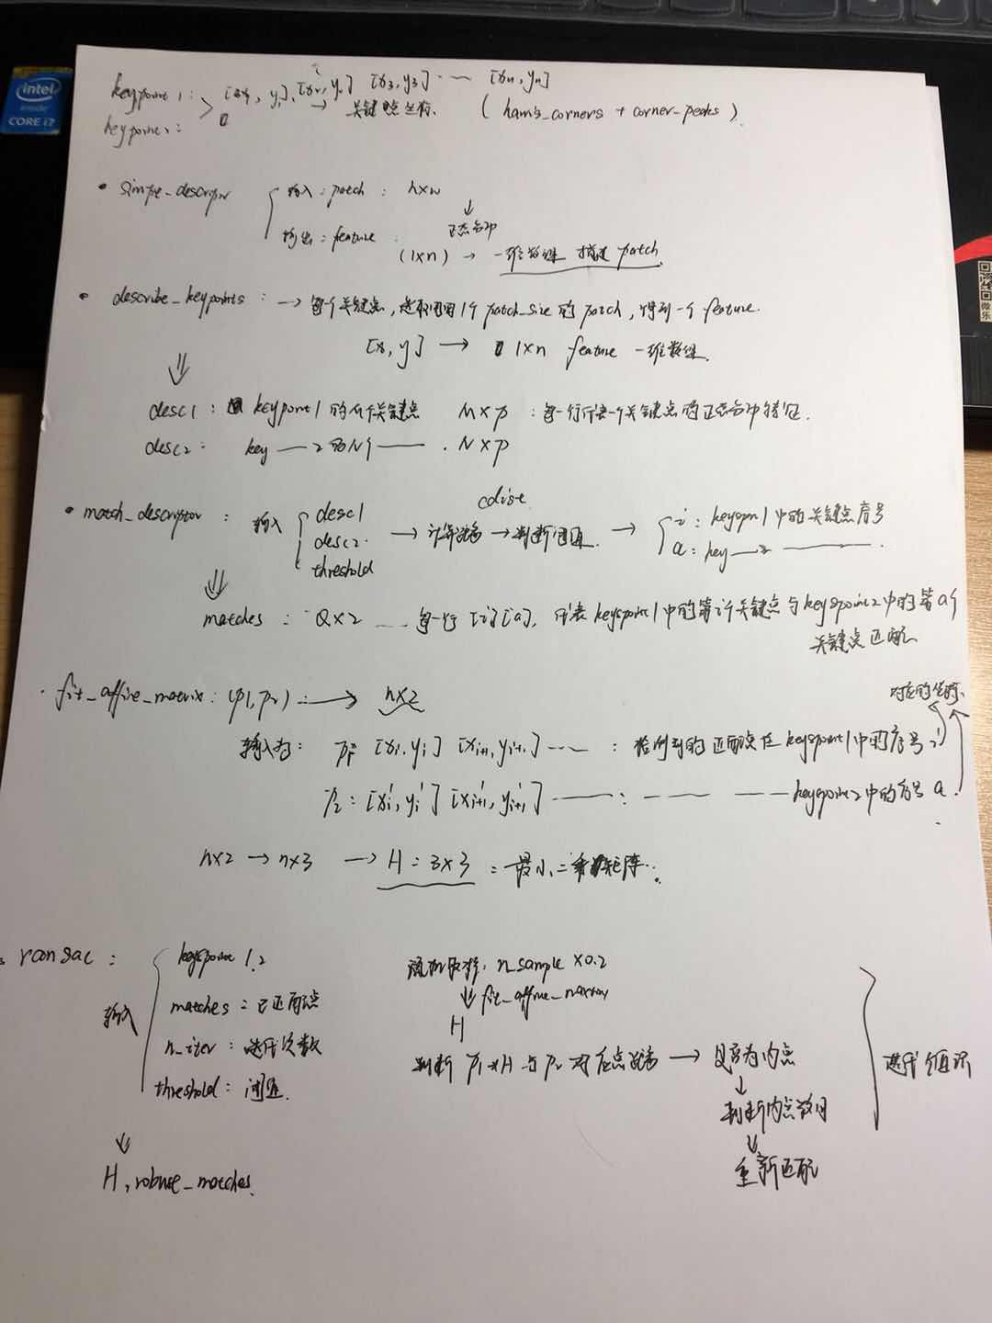 intel
inside
CORE i7
keypoint1: [x1, y1], [x2, y2] [x3, y3] ... [xn, yn]
keypoint2: → 关键点坐标. (harris_corners + corner_peaks)
• simple_descriptor 输入: patch: n×n
正态分布
输出: feature: (1×n) → 一维数组 描述 patch
• describe_keypoints: → 每个关键点, 选取周围1个 patch_size 的 patch, 得到一个 feature.
[x, y] → 1×n feature 一维数组.
desc1: keypoint1的M个关键点 M×p: 每一行代表一个关键点的正态分布特征.
desc2: key — 2的N个 — . N×p
• match_descriptor: 输入 desc1 → 计算距离 cdist → 判断阈值 → i: keypoint1中的关键点序号
desc2. a: key — 2 — .
threshold
matches: Q×2 ... 每一行 [i][a], 代表 keyspoint1中的第i个关键点与keyspoint2中的第a个
关键点匹配
对应的坐标.
· fit_affine_matrix: (p1, p2): → n×2
输入为: p1: [xi, yi] [xi+1, yi+1] ...: 指得到的匹配点在 keyspoint1中的序号 i
p2: [xi', yi'] [xi+1', yi+1'] — : — — — keyspoint2中的序号 a.
n×2 → n×3 → H: 3×3: 最小二乘矩阵.
• ransac: 输入 keyspoint 1.2
matches: 已匹配点
n_iter: 迭代次数
threshold: 阈值.
H, robust_matches.
随机取样: n_sample ×0.2
fit_affine_matrix
H
判断 p1×H 与 p2 对应点距离 → 是否为内点
判断内点数目
重新匹配
迭代循环
微
乐